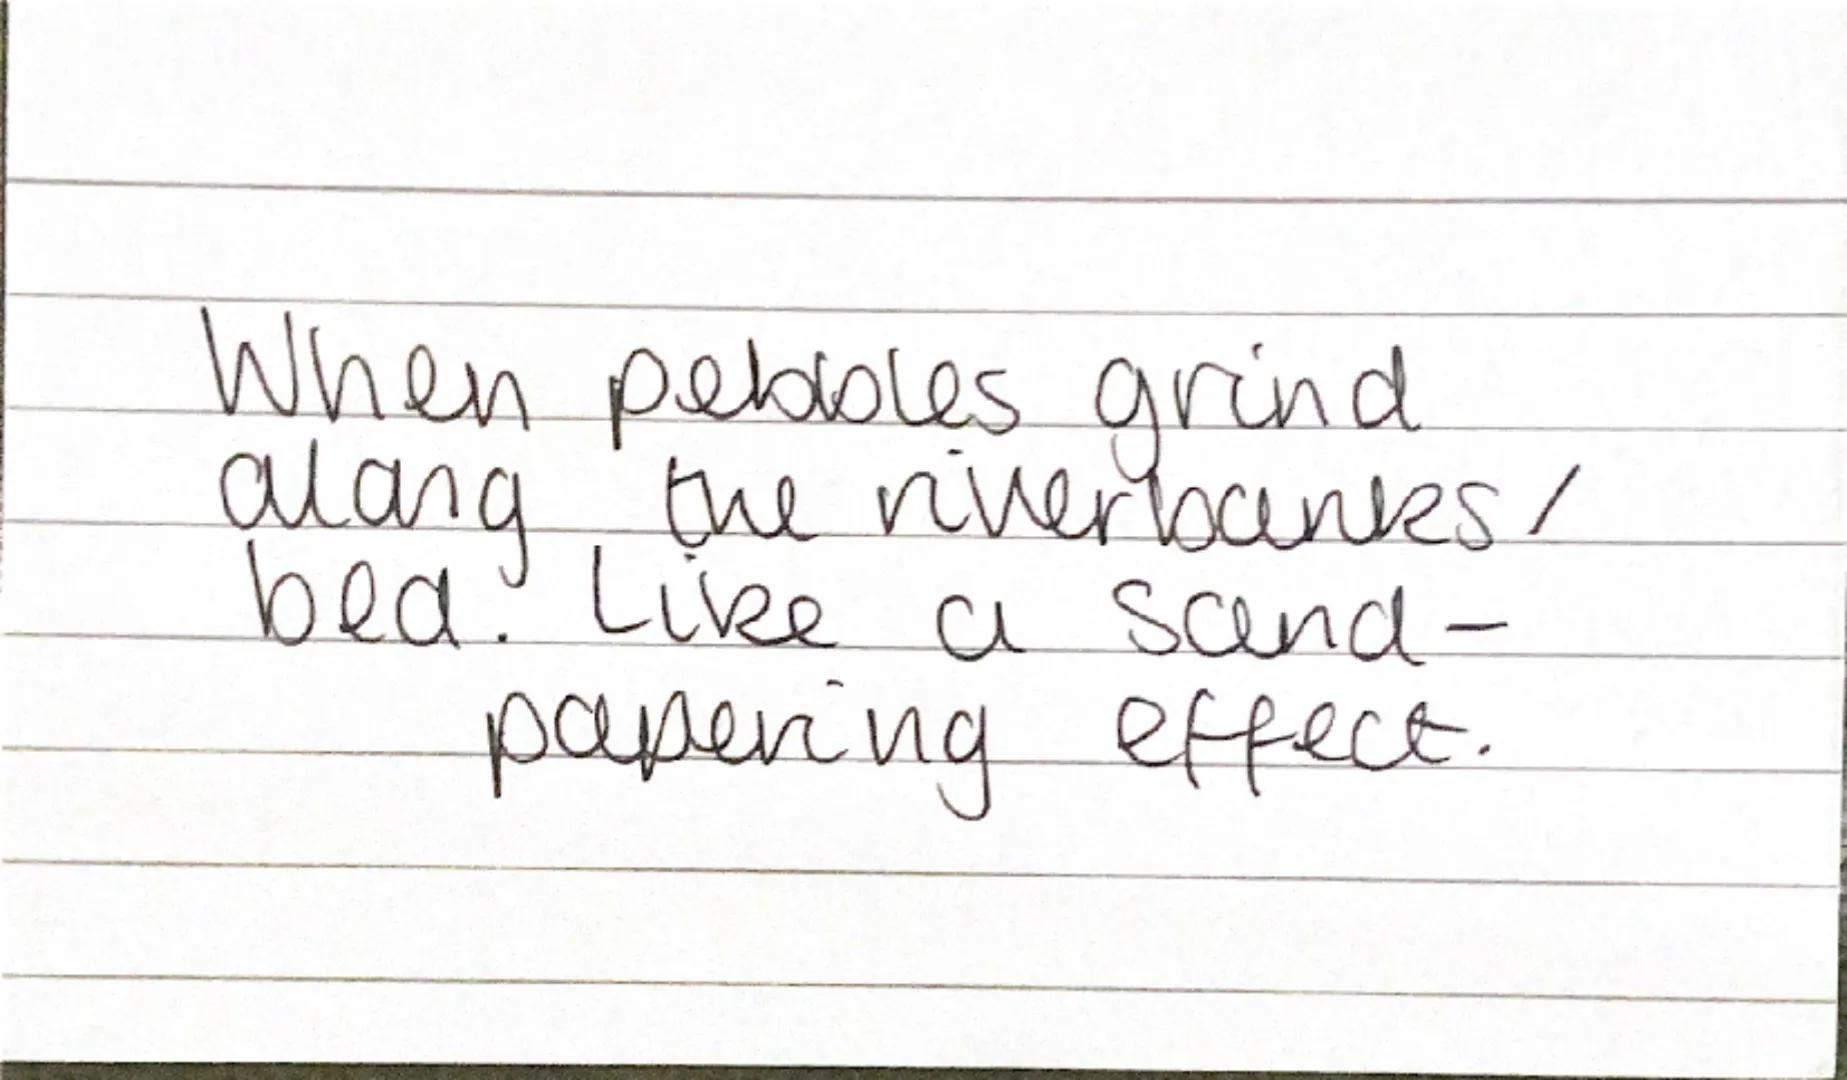 When pebbles grind
along the riverbanks/
bed. Like a sand-
papering effect.